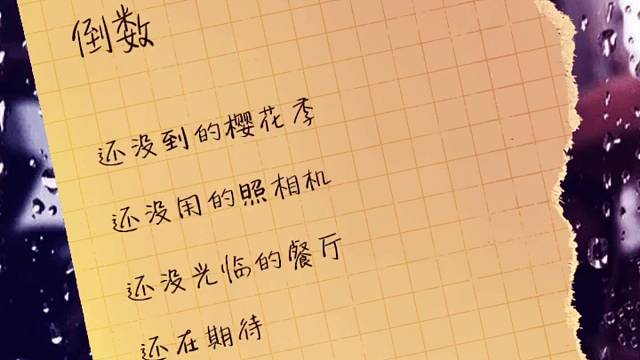 倒数
还没到的樱花季
还没用的照相机
还没光临的餐厅
还在期待